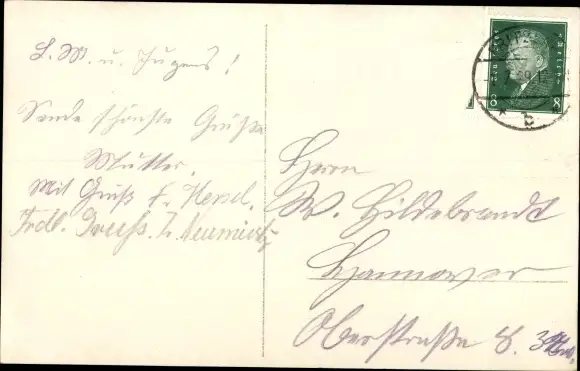 L. W. u. Jugend!
Sende schönste Grüße
Mutter.
Mit Gruß Fr.
Frdl. Gruß.
Herrn
W. Hildebrandt
Hannover
Oberstraße 8.
Deutsches Reich
8 8
b